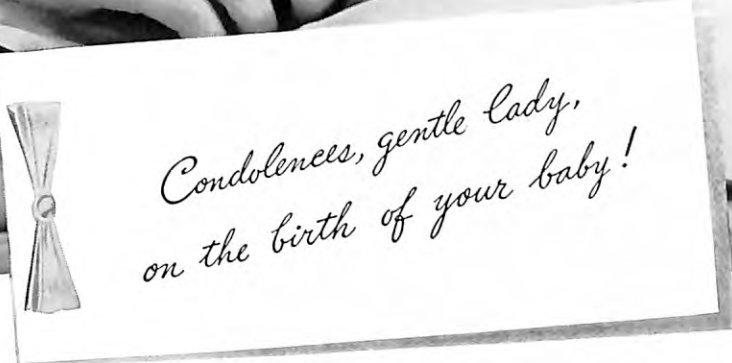 Condolences, gentle lady,
on the birth of your baby!